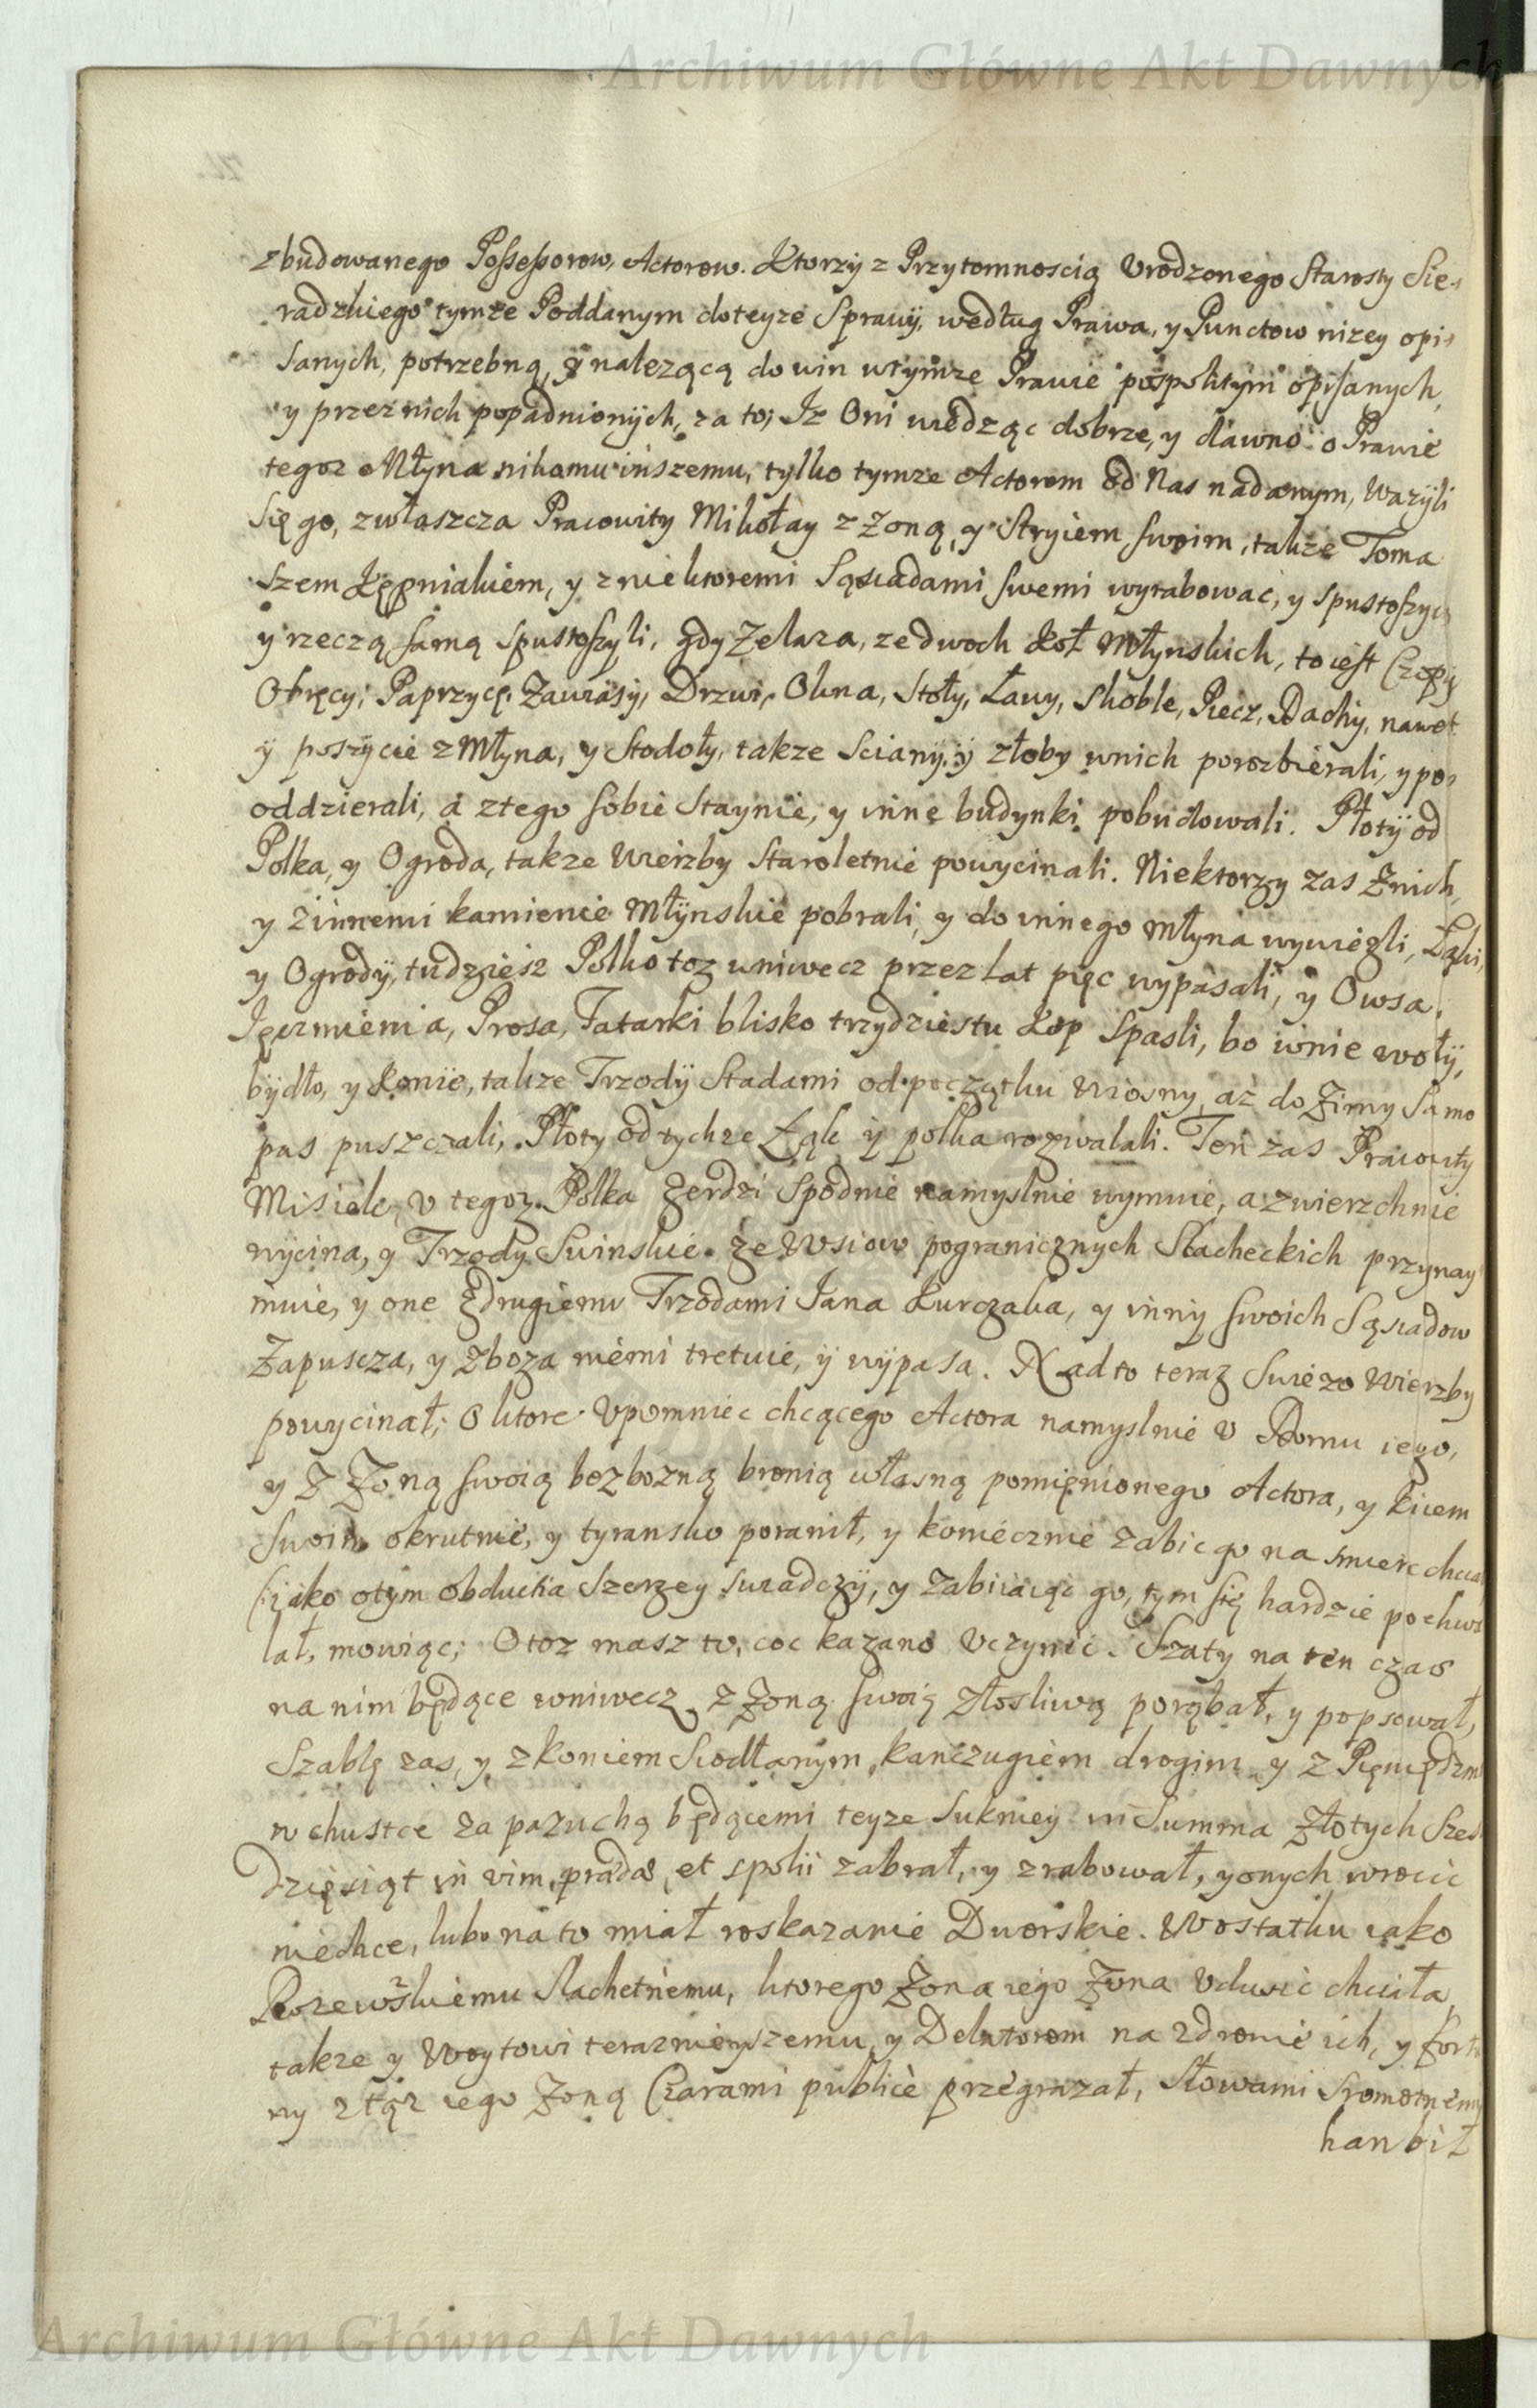 Archiwum Główne Akt Dawnych
zbudowanego Possessorow, Actorow. Ktorzy z Przytomnoscią Vrodzonego Starosty Sie-
radzkiego tymze Poddanym doteyze Sprawy, według Prawa, y Punctow nizey opi-
sanych, potrzebną, y nalezącą do win wtymze Prawie pospolitym opisanych,
y przeznich popadnionych, za to; Iz Oni wiedząc dobrze, y dawno o Prawie
tegoz Młyna nikomu inszemu, tylko tymze Actorom od Nas nadanym, Wazyli
się go, zwłaszcza Pracowity Mikołay z Zoną, y Stryiem swoim, takze Toma
szem Kępniakiem, y zniektoremi Sąsiadami swemi wyrabowac, y spustoszyc
y rzeczą samą spustoszyli, gdy Zelaza, ze dwoch Koł Młynskich, to iest Czopy
Obręcy, Paprzycę, Zawiasy, Drzwi, Okna, Stoły, Ławy, Skoble, Piecz, Dachy, nawet
y poszycie z Młyna, y Stodoły, takze sciany, y złoby wnich porozbierali, y po-
oddzierali, a ztego sobie Staynie, y inne budynki pobudowali. Płoty od
Polka, y Ogroda, takze Wierzby Staroletnie powycinali. Niektorzy zas Znich,
y zinnemi kamienie Młynskie pobrali, y do innego Młyna wywiezli, Łąki,
y Ogrody, tudziesz Polko toz wniwecz przez lat pięc wypasali, y Owsa,
Ięczmienia, Prosa, Tatarki blisko trzydziestu Kop Spasli, bo wnie woły,
bydło, y Konie, takze Trzody Stadami od początku Wiosny, az do Zimy Samo
pas puszczali, Płoty od tychze Łąk y polka rozwalali. Ten zas Pracowity
Misiek, v tegoz Polka Zerdzi Spodnie namyslnie wymuie, a zwierzchnie
wycina, y Trzody Swinskie ze Wsiow pogranicznych Slacheckich przynay
muie, y one Zdrugiemi Trzodami Iana Kurczaka, y inny swoich Sąsiadow
Zapuscza, y zboza niemi tretuie, y wypasa. Nad to teraz Swiezo Wierzby
powycinał; O ktore Vpomniec chcącego Actora namyslnie v Domu iego,
y Z Zoną swoią bezbozną bronią własną pomięnionego Actora, y kiiem
Swoim okrutnie, y tyransko poranił, y koniecznie zabic go na smierc chciał
(:iako otym obdukcia Szerzey swiadczy, y zabiiaiąc go, tym się hardzie pochwa
lał, mowiąc; Otoz masz to, coc kazano Vczynic. Szaty na ten czas
na nim będące wniwecz z Zoną swoią złosliwą porąbał, y popsował,
Szablę zas, y z koniem Siodłanym, kanczugiem drogim y z Pięniędzmi
w chustce za pazuchą będącemi teyze sukniey in Summa Złotych Szes
dzięsiąt in vim prædæ, et spolii zabrał, y zrabował, y onych wrocic
niechce, lubo na to miał roskazanie Dworskie. Wostatku iako
Slachetnemu, ktorego Zona iego Zona Vdusic chciała,
takze y Woytowi teraznieyszemu, y Delatorom na zdrowie ich, y fortu
ny z tąz iego Zoną Czarami publice przegrazał, Słowami Sromotnemi
hanbił
Archiwum Główne Akt Dawnych